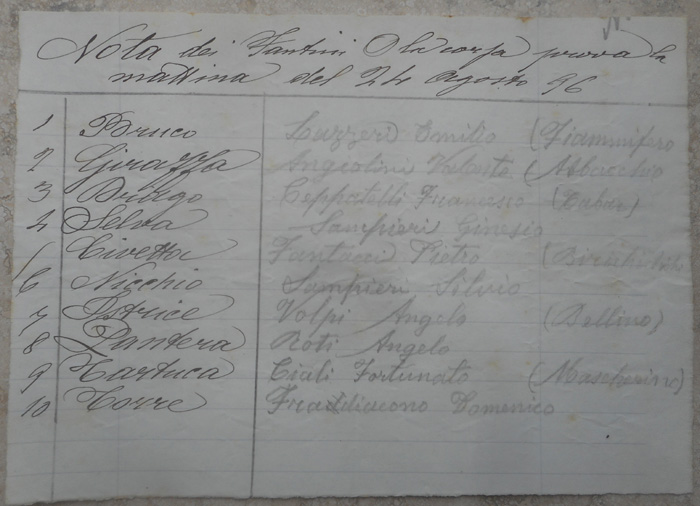 Nota dei Fantini Per la corsa prova la
mattina del 24 Agosto 96
1 Bruco Lazzeri Emilio (Fiammifero
2 Giraffa Angiolini Valente (Abbacchio
3 Drago Ceppatelli Francesco (Tabar)
4 Selva Sampieri Ginesio
Civetta Fantacci Pietro
6 Nicchio Sampieri Silvio
7 Istrice Volpi Angelo (Bellino)
8 Pantera Roti Angelo
9 Tartuca Ciali Fortunato (Mascherino)
10 Torre Fradiacono Domenico